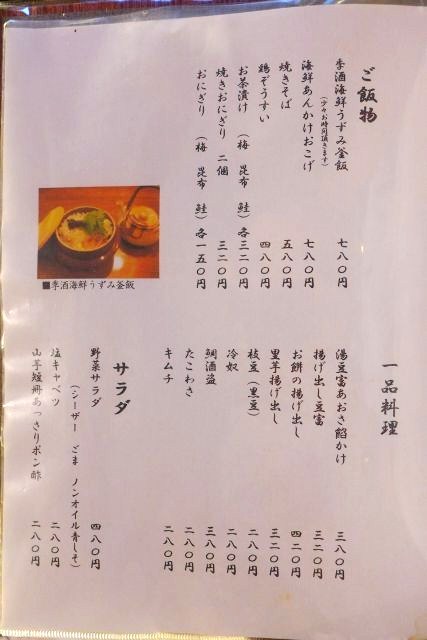 ご飯物
季酒海鮮うずみ釜飯 七八〇円
(少々お時間頂きます)
海鮮あんかけおこげ 七八〇円
焼きそば 五八〇円
鶏ぞうすい 四八〇円
お茶漬け (梅 昆布 鮭)各三二〇円
焼きおにぎり 二個 三二〇円
おにぎり (梅 昆布 鮭)各一五〇円
■季酒海鮮うずみ釜飯
一品料理
湯豆富あおさ餡かけ 三八〇円
揚げ出し豆富 三二〇円
お餅の揚げ出し 四二〇円
里芋揚げ出し 三二〇円
枝豆(黒豆) 二八〇円
冷奴 二八〇円
鯛酒盗 三八〇円
たこわさ 二八〇円
キムチ 二八〇円
サラダ
野菜サラダ 四八〇円
(シーザー ごま ノンオイル青しそ)
塩キャベツ 二八〇円
山芋短冊あっさりポン酢 二八〇円